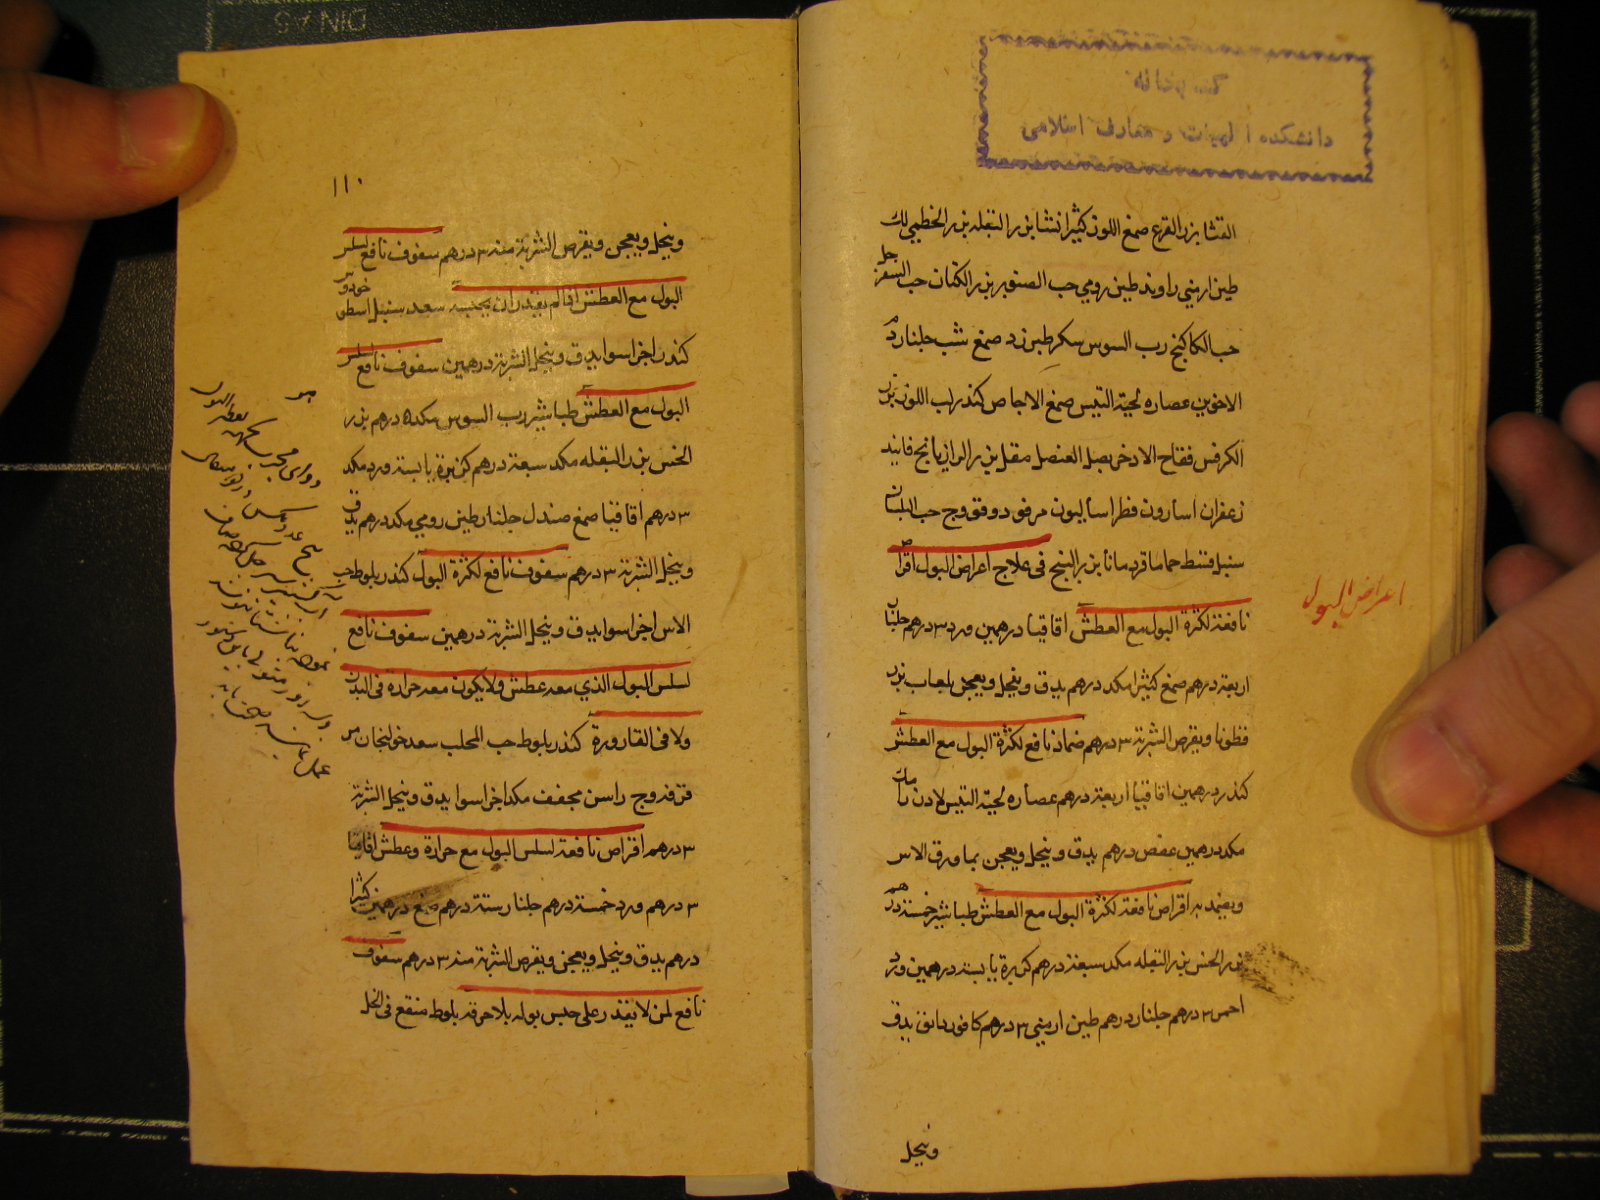 كتابخانه
دانشكده الهيات و معارف اسلامى
القثا بزر القرع صمغ اللوز كثيرا نشا بزر البقله بزر الخطمي لك
طين ارمني راوند طين رومي حب الصنوبر بزر الكتان حب السفرجل
حب الكاكنج رب السوس سكر طبرزد صمغ شب جلنار دم
الاخوين عصاره لحية التيس صمغ الاجاص كندر لب اللوز بزر
الكرفس فقاح الاذخر بصل العنصل مقل بزر الرازيانج فانيد
زعفران اسارون فطراساليون مر فو دوقو وج حب البلسان
سنبل قسط حماما قردمانا بزر البنج في علاج اعراض البول اقراص
نافعة لكثرة البول مع العطش اقاقيا درهمين ورد ٣ درهم جلنار
اربعة درهم صمغ كثيرا مكد درهم يدق وينخل ويعجن بلعاب بزر
قطونا ويقرص الشربة ٣ درهم ضماد نافع لكثرة البول مع العطش
كندر درهمين اقاقيا اربعة درهم عصاره لحية التيس لادن رامك
مكد درهمين عفص درهم يدق وينخل ويعجن بماورق الاس
ويضمد به اقراص نافعة لكثرة البول مع العطش طباشير خمسة درهم
بزر الخس بزر البقله مكد سبعة درهم كزبرة يابسة درهمين ورد
احمر ٣ درهم جلنار درهم طين ارمني ٣ درهم كافور دانق يدق
وينخل
اعراض البول
١١٠
وينخل ويعجن ويقرص الشربة منه ٣ درهم سفوف نافع لسلس
البول مع العطش اذا لم يقدر ان يحبسه سعد سنبل اسطوخودوس
كندر اجزا سوا يدق وينخل الشربة درهمين سفوف نافع لسلس
البول مع العطش طباشير رب السوس مكد ٥ درهم بزر
الخس بزر البقله مكد سبعة درهم كزبرة يابسة ورد مكد
٣ درهم اقاقيا صمغ صندل جلنار طين رومي مكد درهم يدق
وينخل الشربة ٣ درهم سفوف نافع لكثرة البول كندر بلوط حب
الاس اجزا سوا يدق وينخل الشربة درهمين سفوف نافع
لسلس البول الذي معه عطش ولا يكون معه حرارة في البدن
ولا في القارورة كندر بلوط حب المحلب سعد خولنجان مر
قرفه وج راسن مجفف مكد اجزا سوا يدق وينخل الشربة
٣ درهم اقراص نافعة لسلس البول مع حرارة وعطش اقاقيا
٣ درهم ورد خمسة درهم جلنار ستة درهم صمغ درهمين كثيرا
درهم يدق وينخل ويعجن ويقرص الشربة منه ٣ درهم سفوف
نافع لمن لا يقدر على حبس بوله بلا حرقه بلوط منقع في الخل